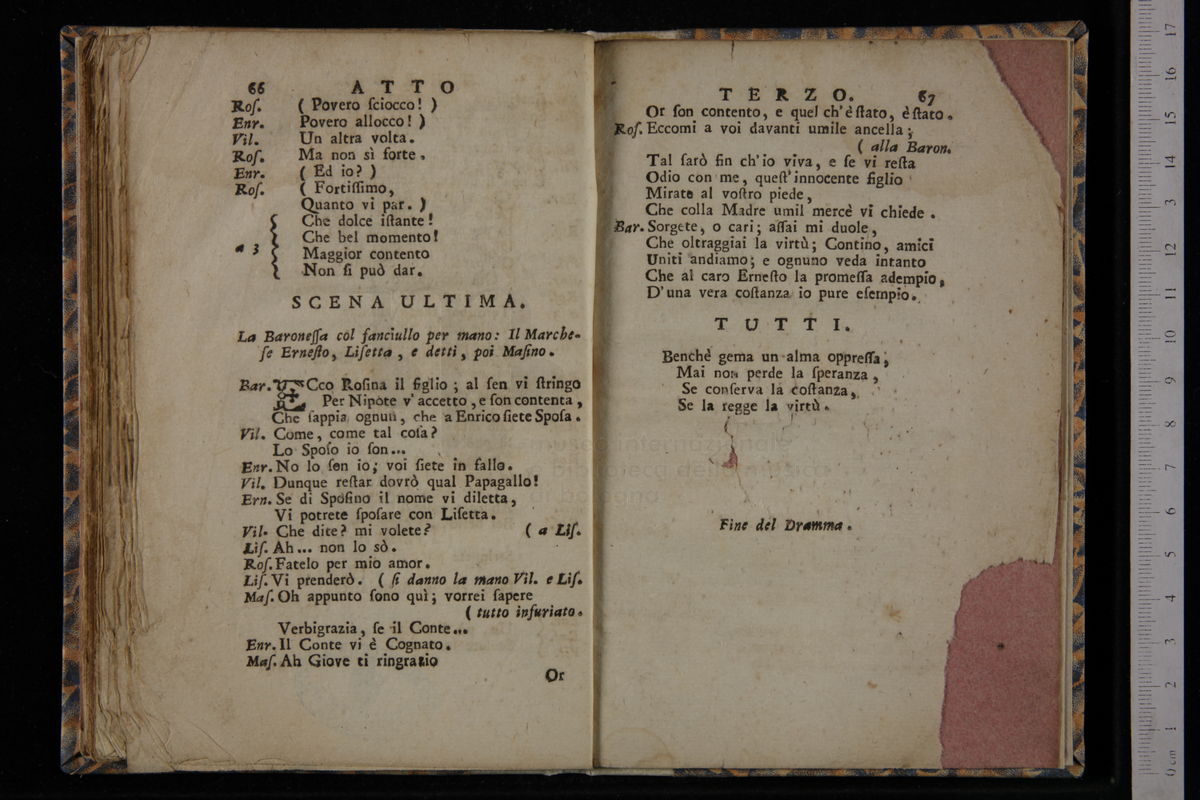 66 ATTO
Roſ. ( Povero ſciocco! )
Enr. Povero allocco! )
Vil. Un altra volta.
Roſ. Ma non sì forte.
Enr. ( Ed io? )
Roſ. ( Fortiſſimo,
Quanto vi par. )
Che dolce iſtante!
Che bel momento!
a 3 Maggior contento
Non ſi può dar.
SCENA ULTIMA.
La Baroneſſa col fanciullo per mano: Il Marche-
ſe Erneſto, Liſetta, e detti, poi Maſino.
Bar. ECco Roſina il figlio; al ſen vi ſtringo
Per Nipote v'accetto, e ſon contenta,
Che ſappia ognun, che a Enrico ſiete Spoſa.
Vil. Come, come tal coſa?
Lo Spoſo io ſon...
Enr. No lo ſon io; voi ſiete in fallo.
Vil. Dunque reſtar dovrò qual Papagallo!
Ern. Se di Spoſino il nome vi diletta,
Vi potrete ſpoſare con Liſetta.
Vil. Che dite? mi volete? ( a Liſ.
Liſ. Ah... non lo sò.
Roſ. Fatelo per mio amor.
Liſ. Vi prenderò. ( ſi danno la mano Vil. e Liſ.
Maſ. Oh appunto ſono quì; vorrei ſapere
( tutto infuriato.
Verbigrazia, ſe il Conte...
Enr. Il Conte vi è Cognato.
Maſ. Ah Giove ti ringrazio
Or
TERZO. 67
Or ſon contento, e quel ch'è ſtato, è ſtato.
Roſ. Eccomi a voi davanti umile ancella;
( alla Baron.
Tal ſarò fin ch'io viva, e ſe vi reſta
Odio con me, queſt'innocente figlio
Mirate al voſtro piede,
Che colla Madre umil mercè vi chiede.
Bar. Sorgete, o cari; aſſai mi duole,
Che oltraggiai la virtù; Contino, amici
Uniti andiamo; e ognuno veda intanto
Che al caro Erneſto la promeſſa adempio,
D'una vera coſtanza io pure eſempio.
TUTTI.
Benchè gema un alma oppreſſa,
Mai non perde la ſperanza,
Se conſerva la coſtanza,
Se la regge la virtù.
museo internazionale
e biblioteca della musica
di bologna
Fine del Dramma.
0 cm 1 2 3 4 5 6 7 8 9 10 11 12 13 14 15 16 17